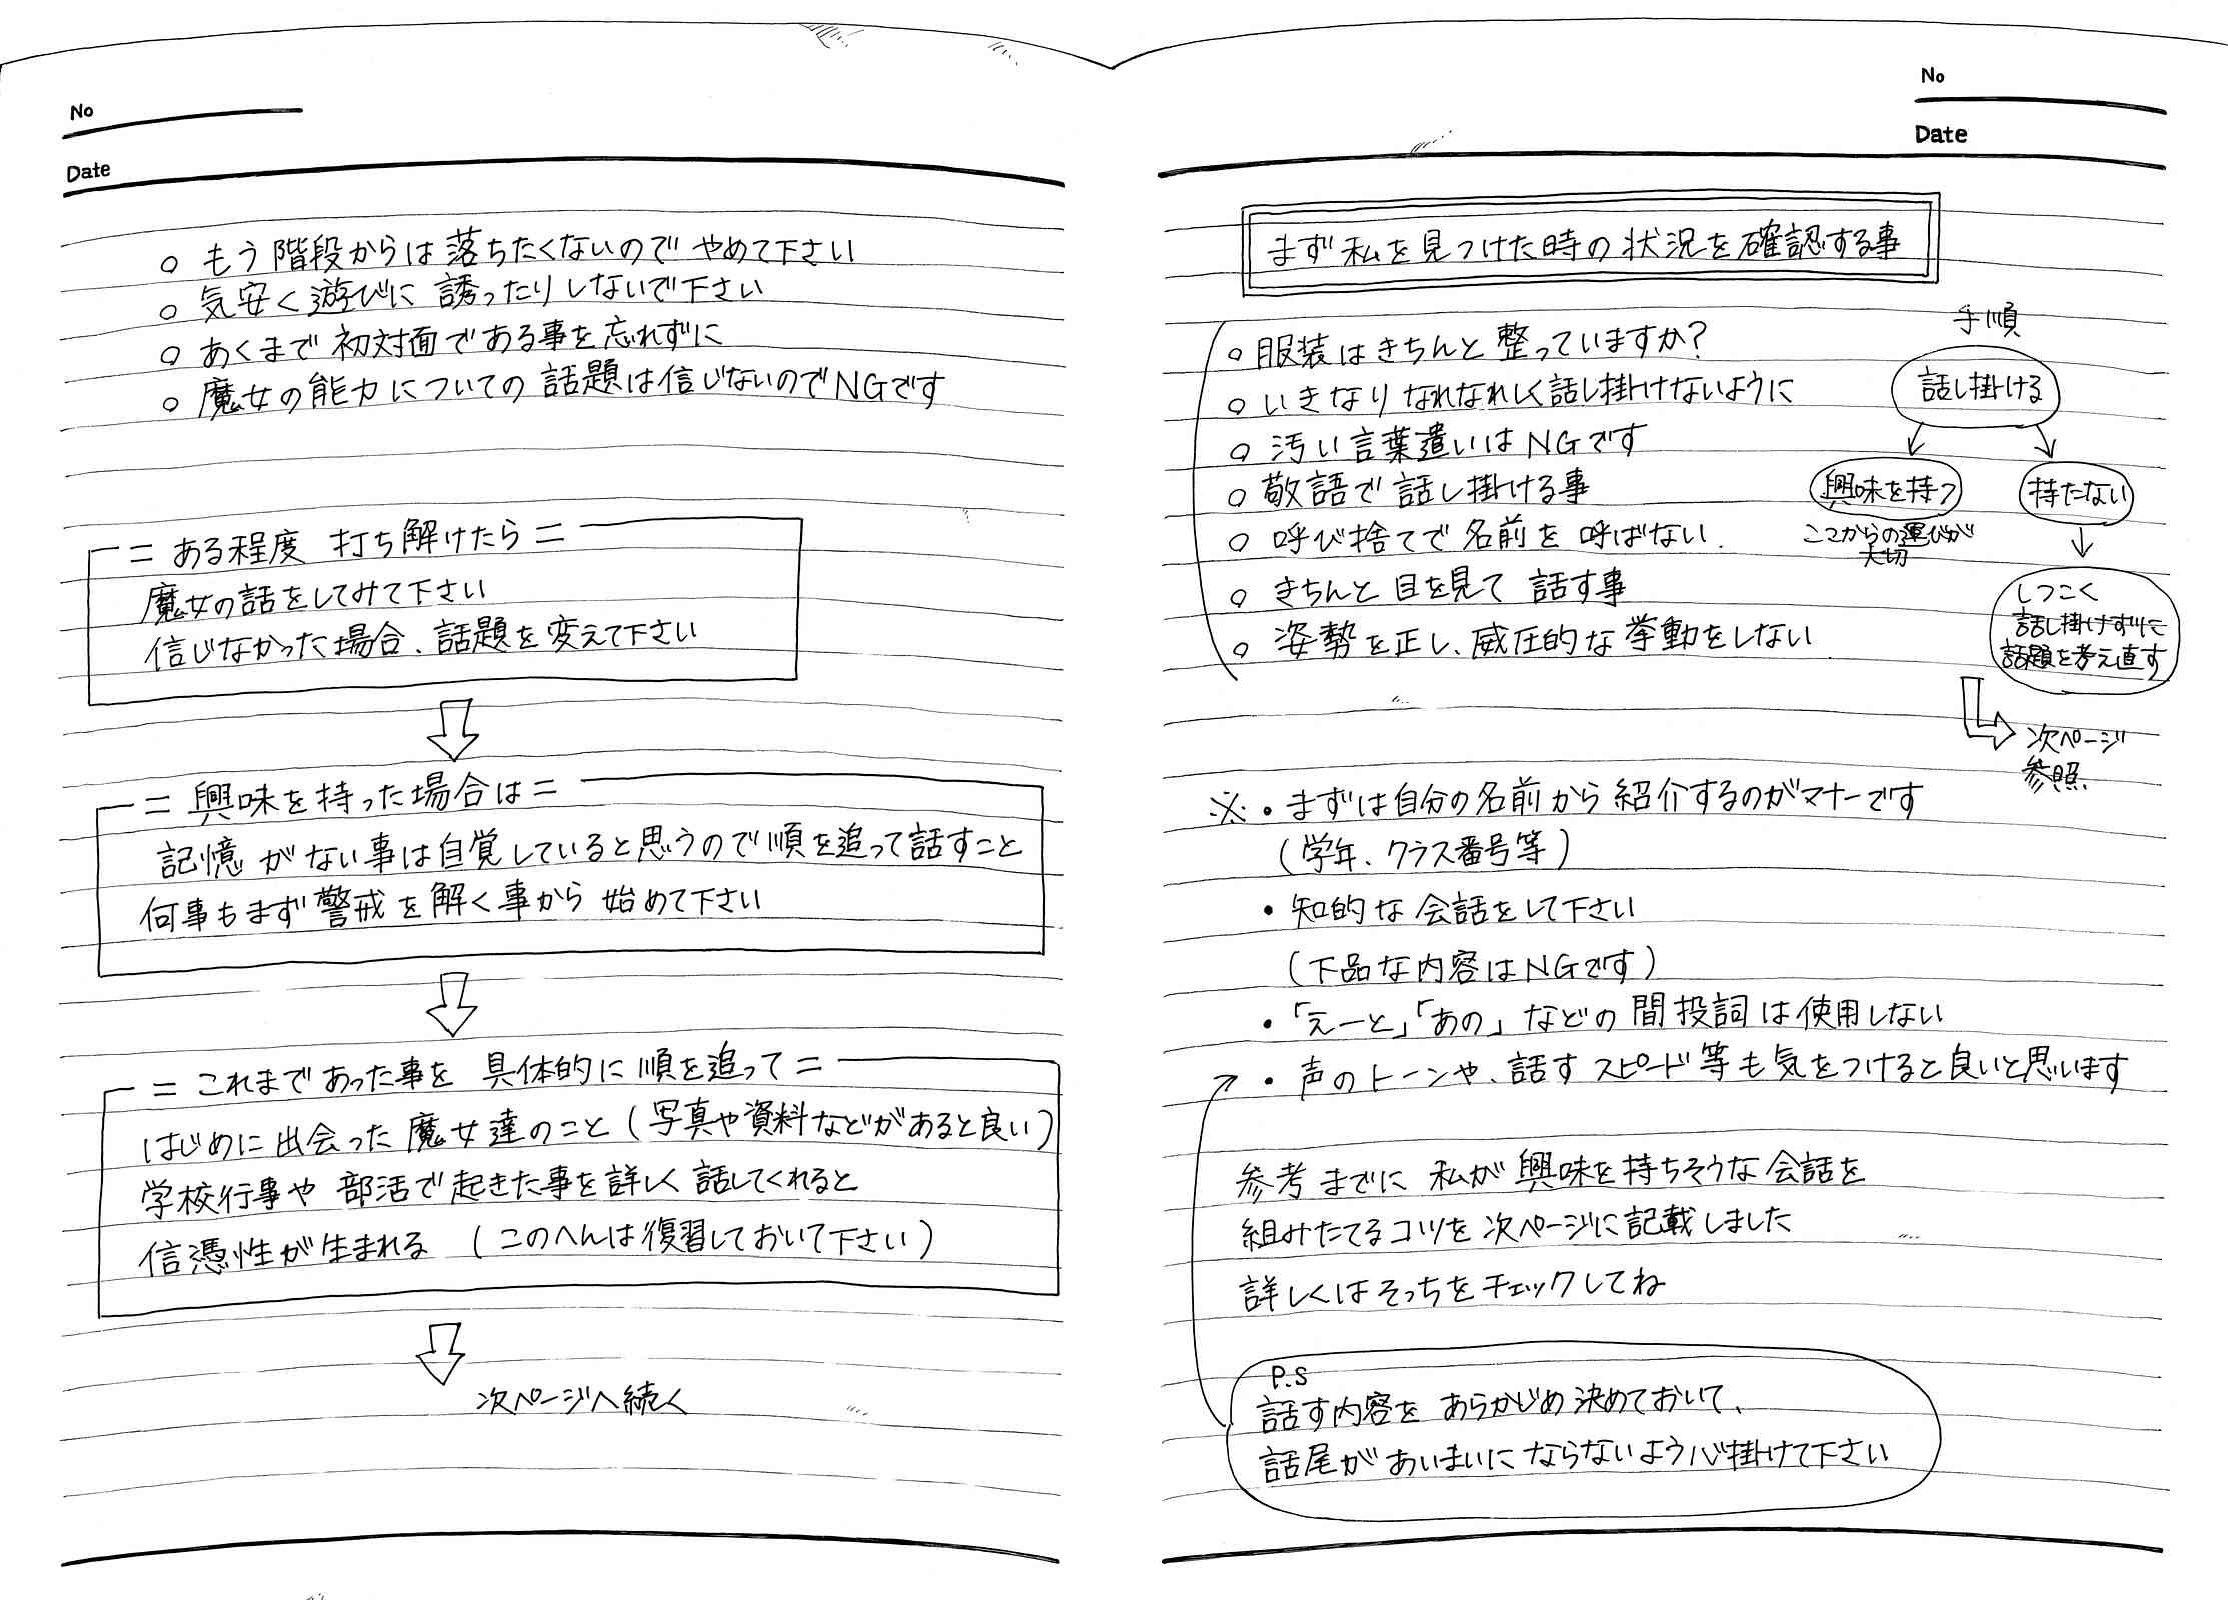 No
Date
まず私を見つけた時の状況を確認する事
○服装はきちんと整っていますか?
○いきなりなれなれしく話し掛けないように
○汚い言葉遣いはNGです
○敬語で話し掛ける事
○呼び捨てで名前を呼ばない.
○きちんと目を見て話す事
○姿勢を正し、威圧的な挙動をしない
手順
話し掛ける
興味を持つ
ここからの運びが
大切
持たない
しつこく
話し掛けずに
話題を考え直す
次ページ
参照
※・まずは自分の名前から紹介するのがマナーです
(学年、クラス番号等)
・知的な会話をして下さい
(下品な内容はNGです)
・「えーと」「あの」などの間投詞は使用しない
・声のトーンや、話すスピード等も気をつけると良いと思います
参考までに私が興味を持ちそうな会話を
組みたてるコツを次ページに記載しました
詳しくはそっちをチェックしてね
P.S
話す内容をあらかじめ決めておいて、
話尾があいまいにならないよう心掛けて下さい
No
Date
○もう階段からは落ちたくないのでやめて下さい
○気安く遊びに誘ったりしないで下さい
○あくまで初対面である事を忘れずに
○魔女の能力についての話題は信じないのでNGです
=ある程度打ち解けたら=
魔女の話をしてみて下さい
信じなかった場合、話題を変えて下さい
=興味を持った場合は=
記憶がない事は自覚していると思うので順を追って話すこと
何事もまず警戒を解く事から始めて下さい
=これまであった事を具体的に順を追って=
はじめに出会った魔女達のこと(写真や資料などがあると良い)
学校行事や部活で起きた事を詳しく話してくれると
信憑性が生まれる (このへんは復習しておいて下さい)
次ページへ続く